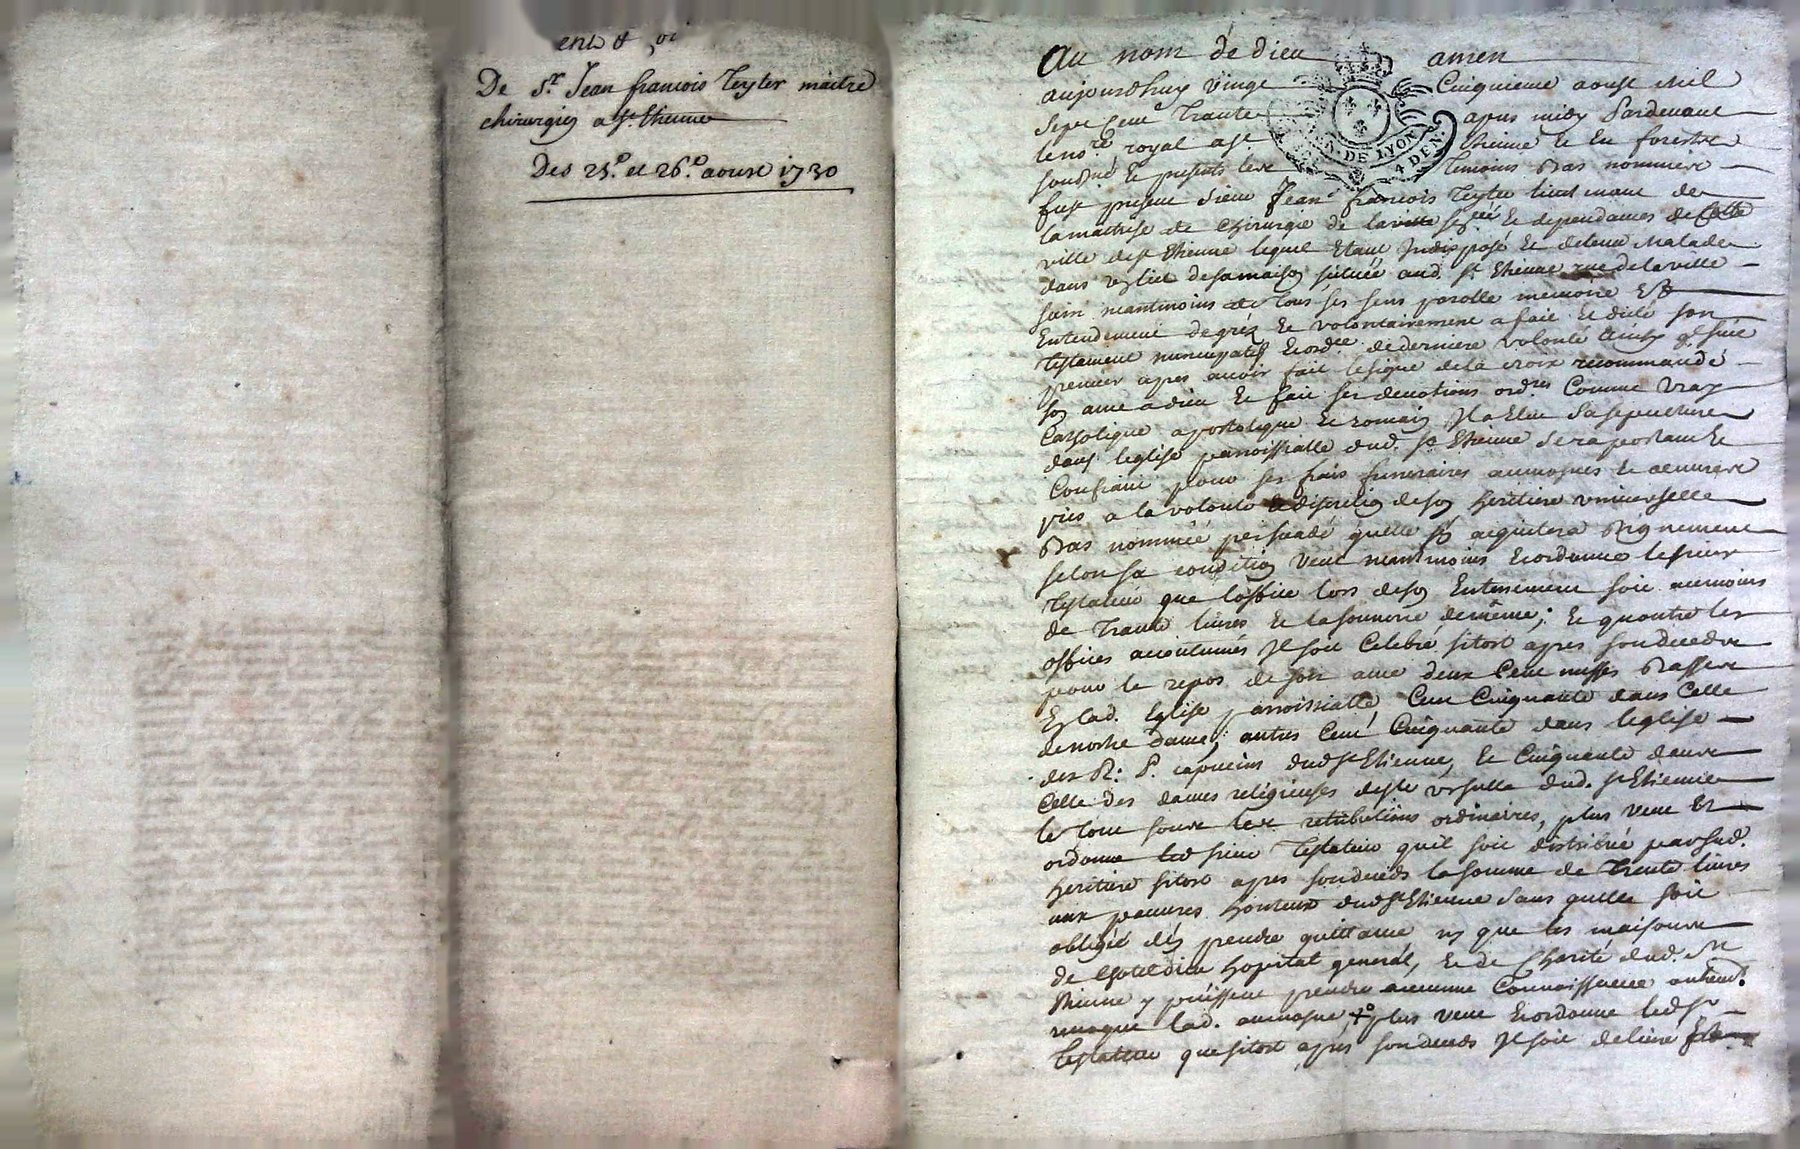 De Sr. Jean françois Teyter maitre
chirurgien a St. Etienne
Des 25e. et 26e. aoust 1730
Au nom de dieu amen
aujourdhuy vingt Cinquieme aoust Mil
Sept Cent Trante apres midy Pardevant
le nore. royal a St Etienne En forestz
soubné Et presents les Temoins Bas nommés
fust present sieur Jean françois Teyter lieut
la maitrise de chirurgie de la ditte Et dependances de Cette
ville de St Etienne lequel Etant Indisposé Et detenu Malade
dans le lict de sa maison scituée aud. St Etienne rue de la ville
sain neantmoins de tous ses sens parolle memoire Et
Entendement de gréz Et volontairement a fait Et dicté son
Testament nuncupatif Et ordce. de derniere volonté Ainsy q. suit
premier apres avoir fait le signe de la croix recommandé
son ame a dieu Et fait ses devotions ordres Comme vray
Catholique apostolique Et romain Il a Elû Sa sepulture
dans leglise parroissialle dud. St Etienne Se raportant Et
Confiant pour ses frais funeraires aumosnes Et oeuvres
pies a la volonté Et discretion de son heritiere universelle
Bas nommée persuadé quelle sen aquitera Dignement
selon sa condition veut neantmoins Et ordonne le sieur
Testateur que loffice lors de son Enterrement soit aumoins
de Trante livres Et la sonnerie de même; Et quoutre les
offices accoutumés Il soit Celebré sitost apres son decedz
pour le repos de son ame deux Cent messes Basses
En lad. Eglise parroissialle Cent Cinquante dans Celle
de nostre dame, autres Cent Cinquante dans leglise
des R: P. capucins dud St Etienne, Et Cinquante dans
Celle des dames religieuses de Ste ursulle dud. St Etienne
le tout sous les retributions ordinaires, plus veut Et
ordonne led sieur Testateur quil soit distribué par sad.
heritiere sitost apres son deceds la somme de Trente livres
aux pauvres honteux dud St Etienne Sans quelle soit
obligée den prendre quittance ny que les maisons
de lhotel dieu hopital general, Et de Charité dud. St
Etienne y puissent prendre aucunne Connoissance
lad. aumosne, plus veut Et ordonne led Sr
Testateur que sitost apres son deceds Il soit delivré